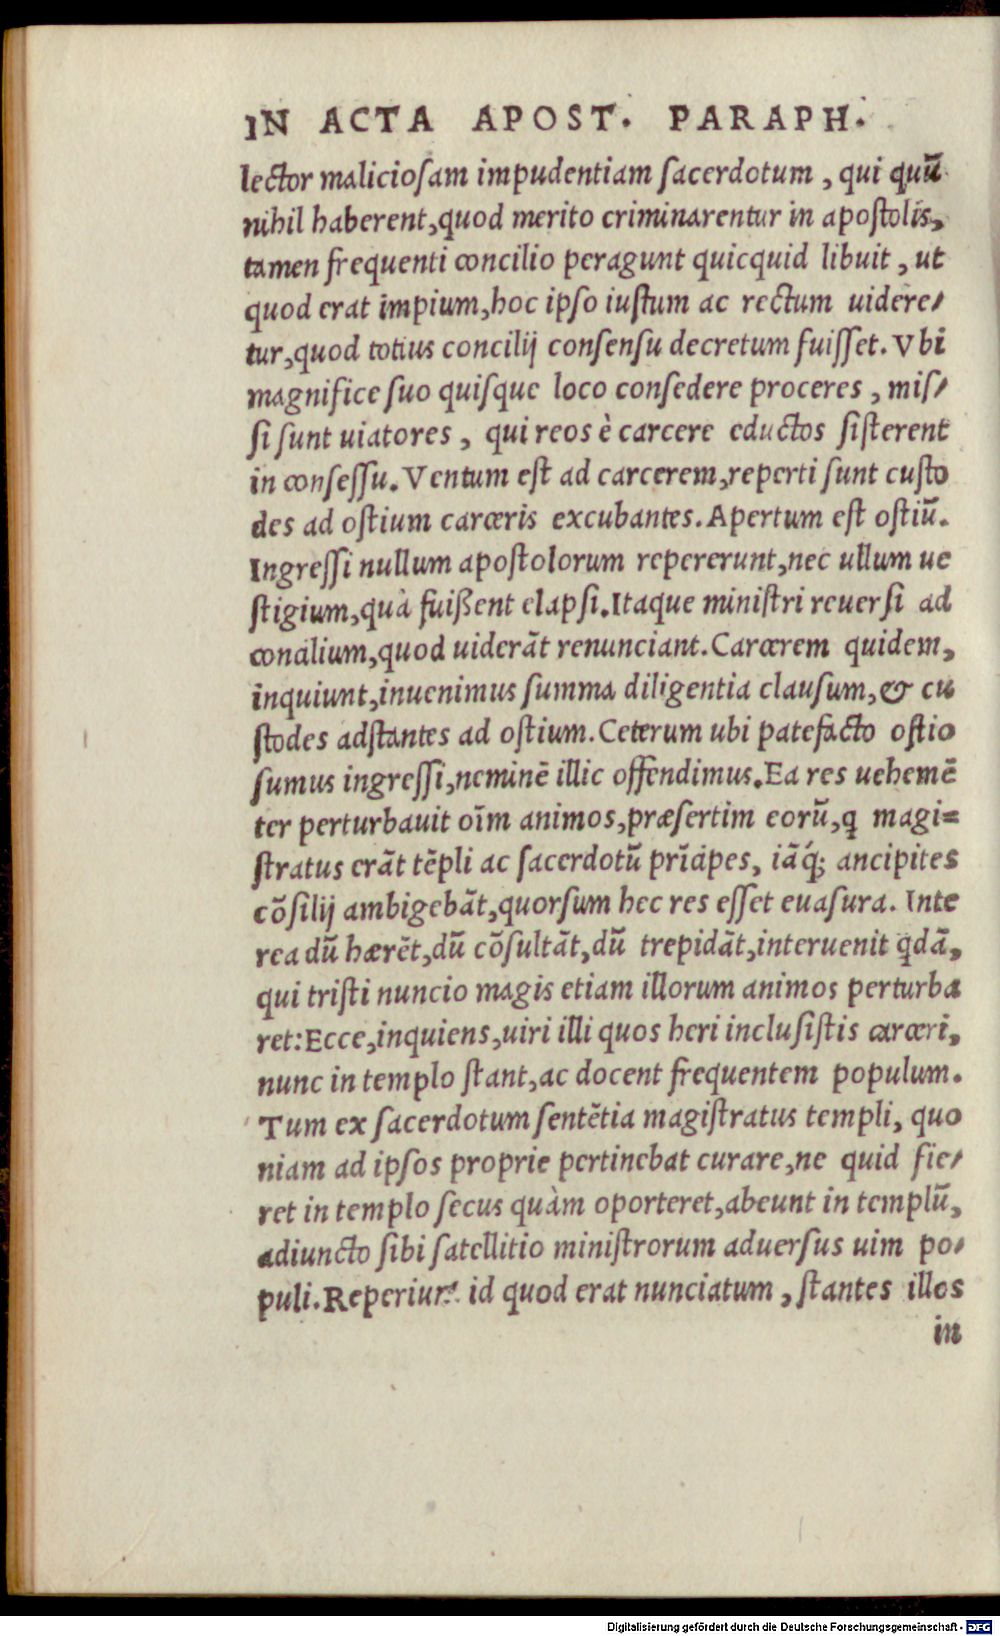 IN ACTA APOST. PARAPH.
lector malicioſam impudentiam ſacerdotum, qui quū
nihil haberent, quod merito criminarentur in apoſtolis,
tamen frequenti concilio peragunt quicquid libuit, ut
quod erat impium, hoc ipſo iuſtum ac rectum uidere⸗
tur, quod totius concilij conſenſu decretum fuiſſet. Vbi
magnifice ſuo quiſque loco conſedere proceres, miſ⸗
ſi ſunt uiatores, qui reos è carcere eductos ſiſterent
in conſeſſu. Ventum eſt ad carcerem, reperti ſunt cuſto
des ad oſtium carceris excubantes. Apertum eſt oſtiū.
Ingreſſi nullum apoſtolorum repererunt, nec ullum ue
ſtigium, quà fuißent elapſi. Itaque miniſtri reuerſi ad
concilium, quod uiderāt renunciant. Carcerem quidem,
inquiunt, inuenimus ſumma diligentia clauſum, & cu
ſtodes adſtantes ad oſtium. Ceterum ubi patefacto oſtio
ſumus ingreſſi, neminē illic offendimus. Ea res uehemē
ter perturbauit oīm animos, præſertim eorū, q magi=
ſtratus erāt tēpli ac ſacerdotū prīcipes, iāq́; ancipites
cōſilij ambigebāt, quorſum hec res eſſet euaſura. Inte
rea dū hærēt, dū cōſultāt, dū trepidāt, interuenit qdā,
qui triſti nuncio magis etiam illorum animos perturba
ret: Ecce, inquiens, uiri illi quos heri incluſiſtis carceri,
nunc in templo ſtant, ac docent frequentem populum.
Tum ex ſacerdotum ſentētia magiſtratus templi, quo
niam ad ipſos proprie pertinebat curare, ne quid fie⸗
ret in templo ſecus quàm oporteret, abeunt in templū,
adiuncto ſibi ſatellitio miniſtrorum aduerſus uim po⸗
puli. Reperiunt id quod erat nunciatum, ſtantes illos
in
Digitalisierung gefördert durch die Deutsche Forschungsgemeinschaft - DFG